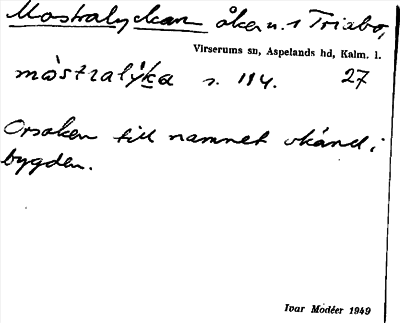 Mostralyckan åker u. 1 Triabo,
Virserums sn, Aspelands hd, Kalm. l.
mòstralýka s. 114. 27
Orsaken till namnet okänd i
bygden.
Ivar Modéer 1949